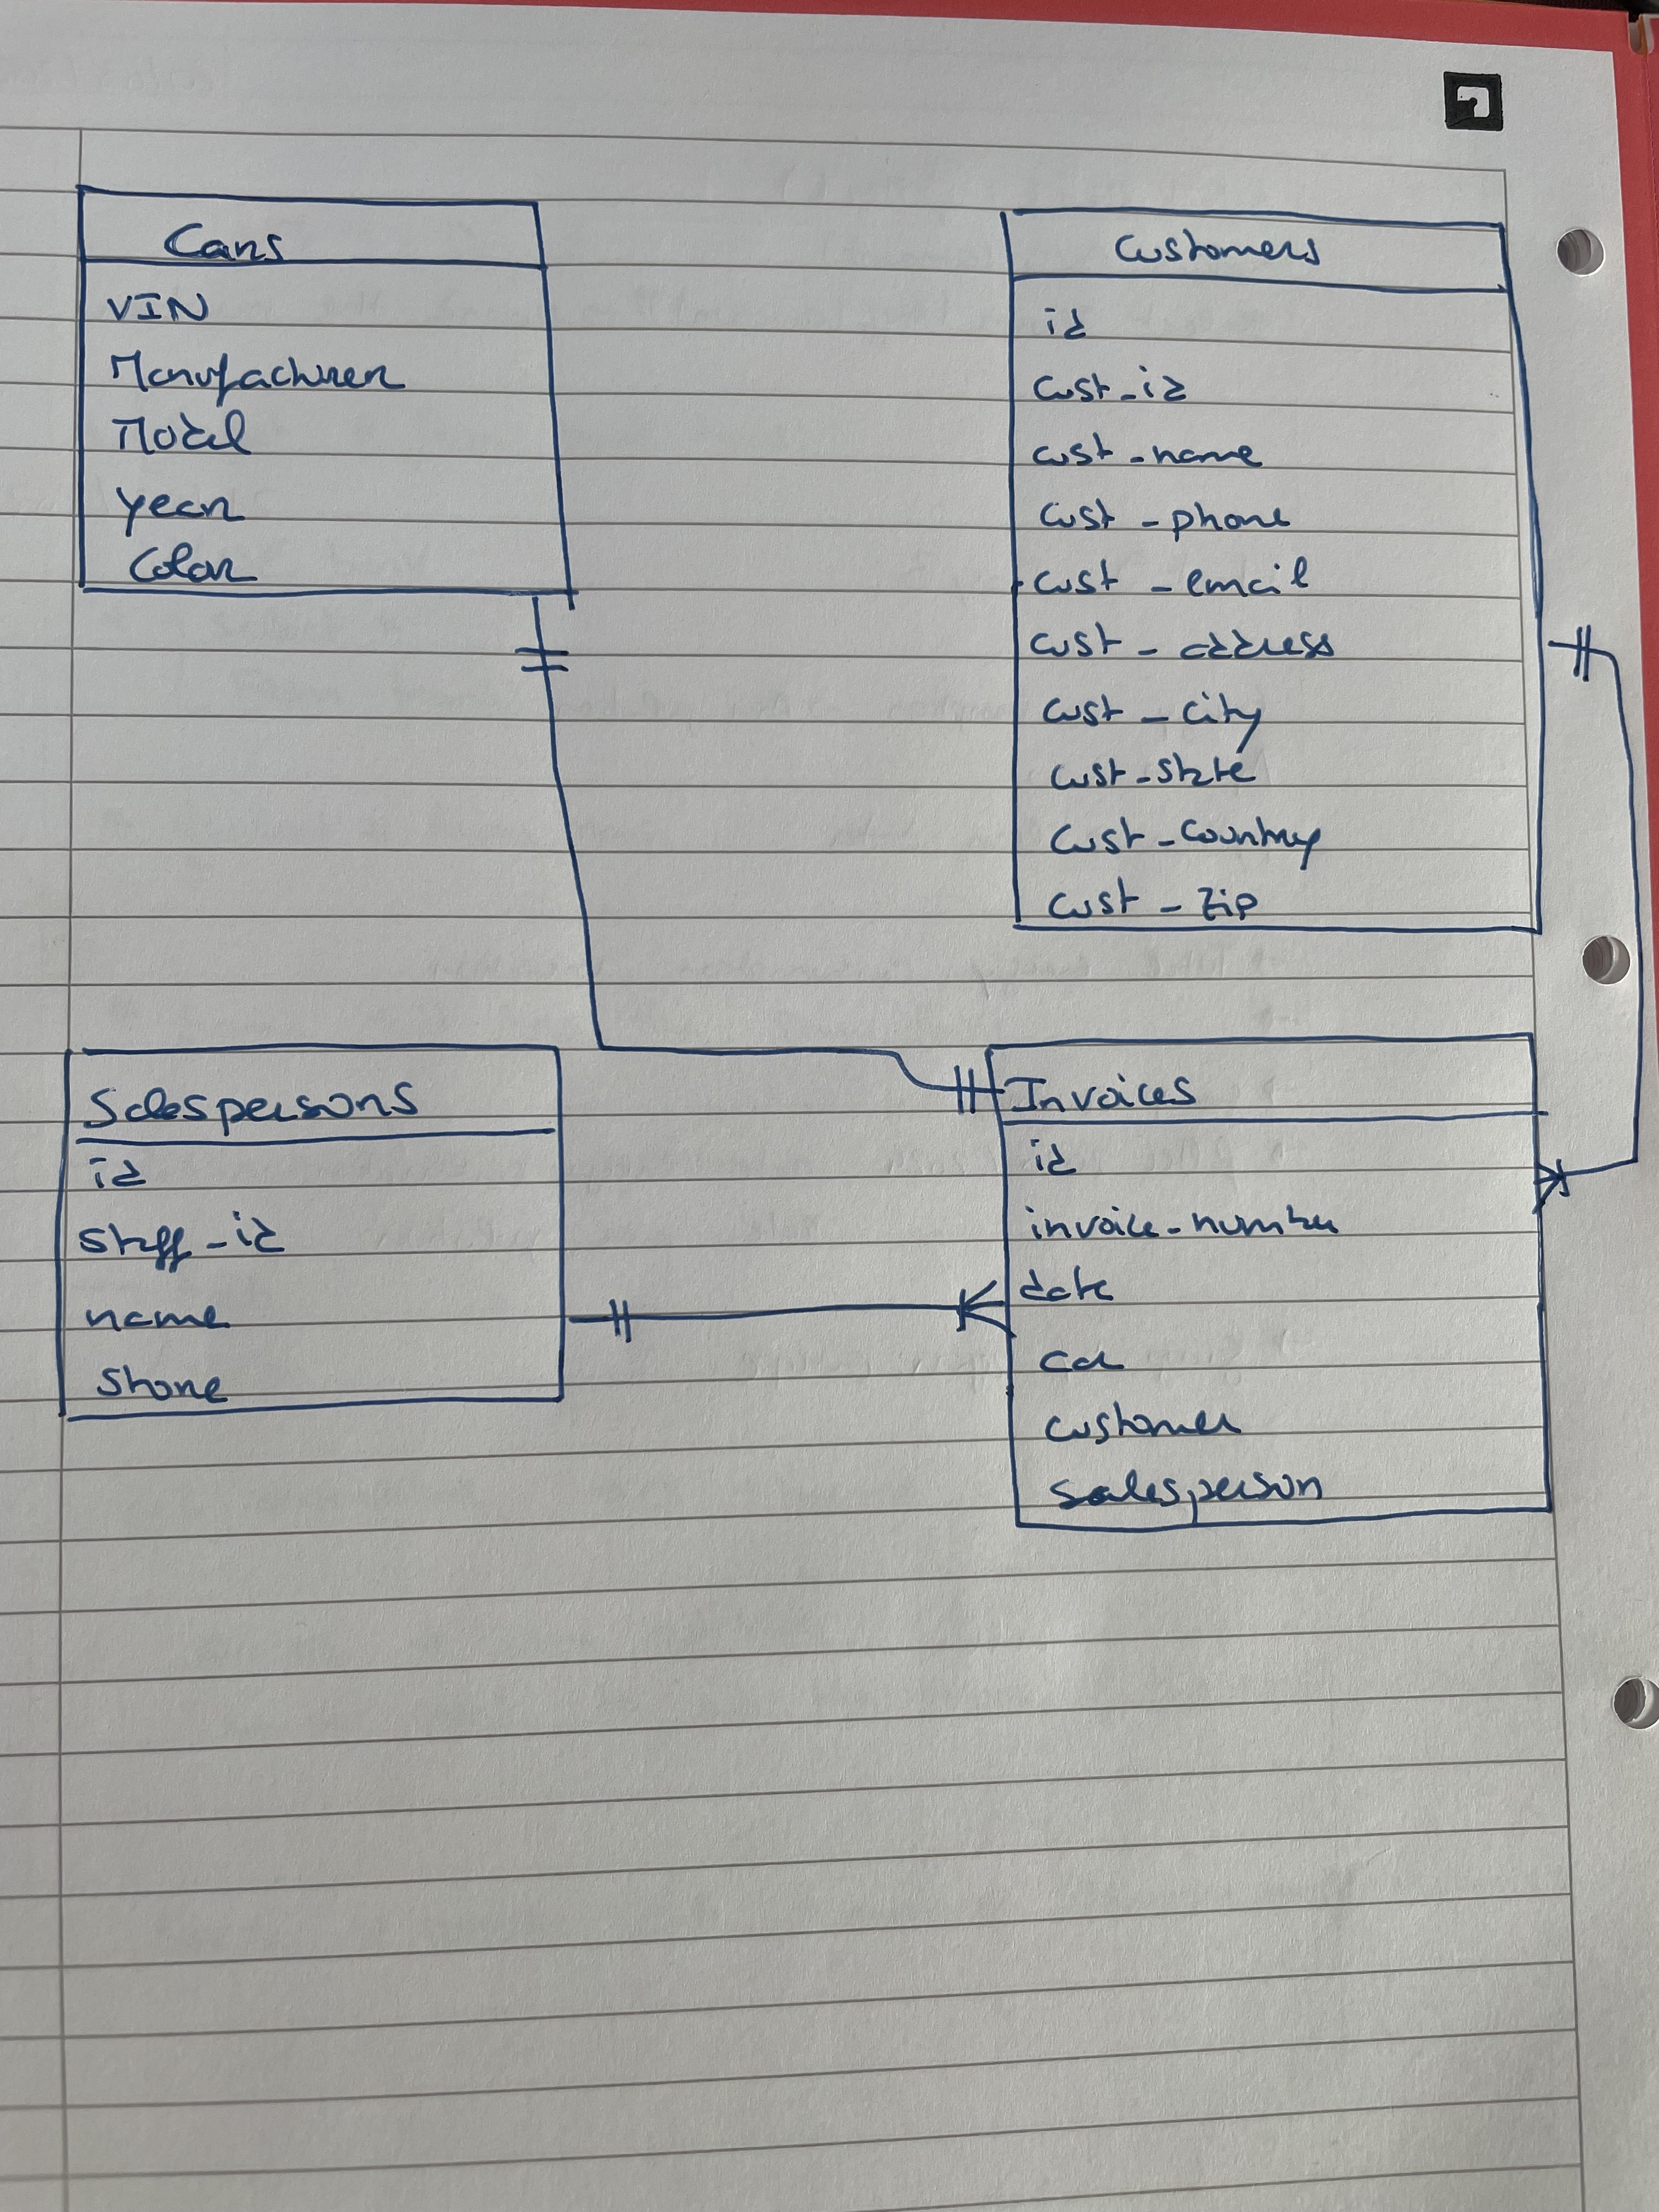 Cars
VIN
Manufacturer
Model
year
Color
Customers
id
cust_id
cust_name
cust_phone
cust_email
cust_address
cust_city
cust_state
cust_country
cust_zip
Salespersons
id
staff_id
name
store
Invoices
id
invoice_number
date
car
customer
salesperson